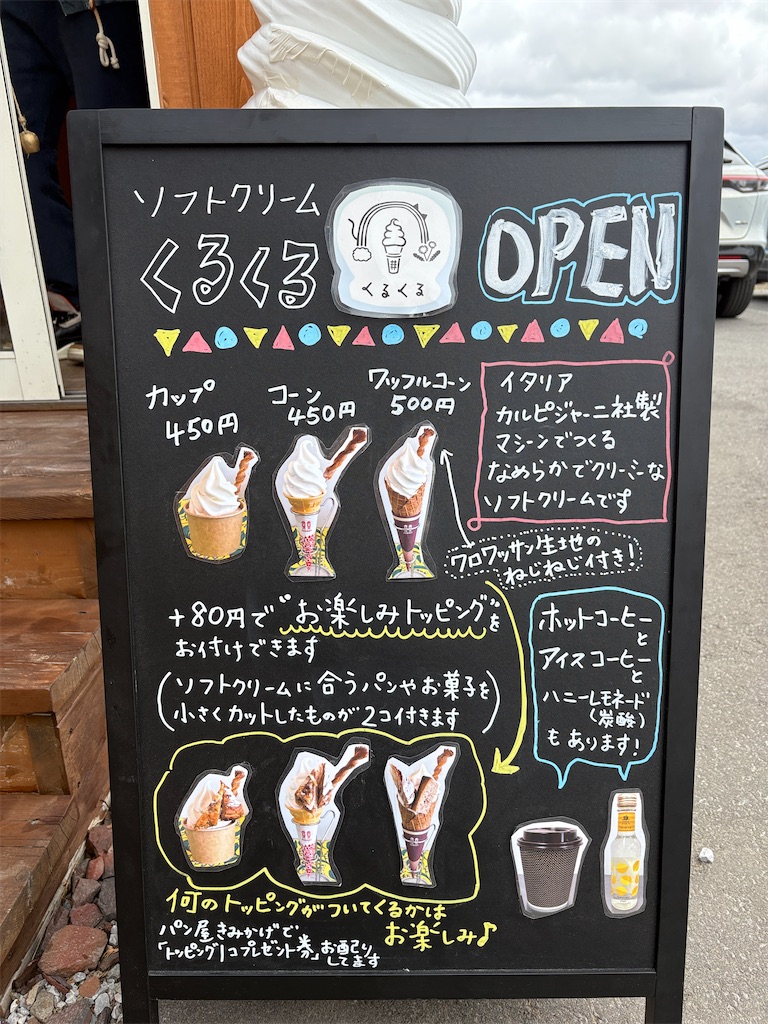 ソフトクリーム
くるくる
くるくる
OPEN
カップ
450円
コーン
450円
ワッフルコーン
500円
イタリア
カルピジャーニ社製
マシーンでつくる
なめらかでクリーミーな
ソフトクリームです
クロワッサン生地の
ねじねじ付き!
+80円で"お楽しみトッピング"を
お付けできます
(ソフトクリームに合うパンやお菓子を
小さくカットしたものが2コ付きます)
ホットコーヒー
と
アイスコーヒー
と
ハニーレモネード
(炭酸)
もあります!
何のトッピングがついてくるかは
お楽しみ♪
パン屋きみかげで
「トッピング1コプレゼント券」お配り
してます